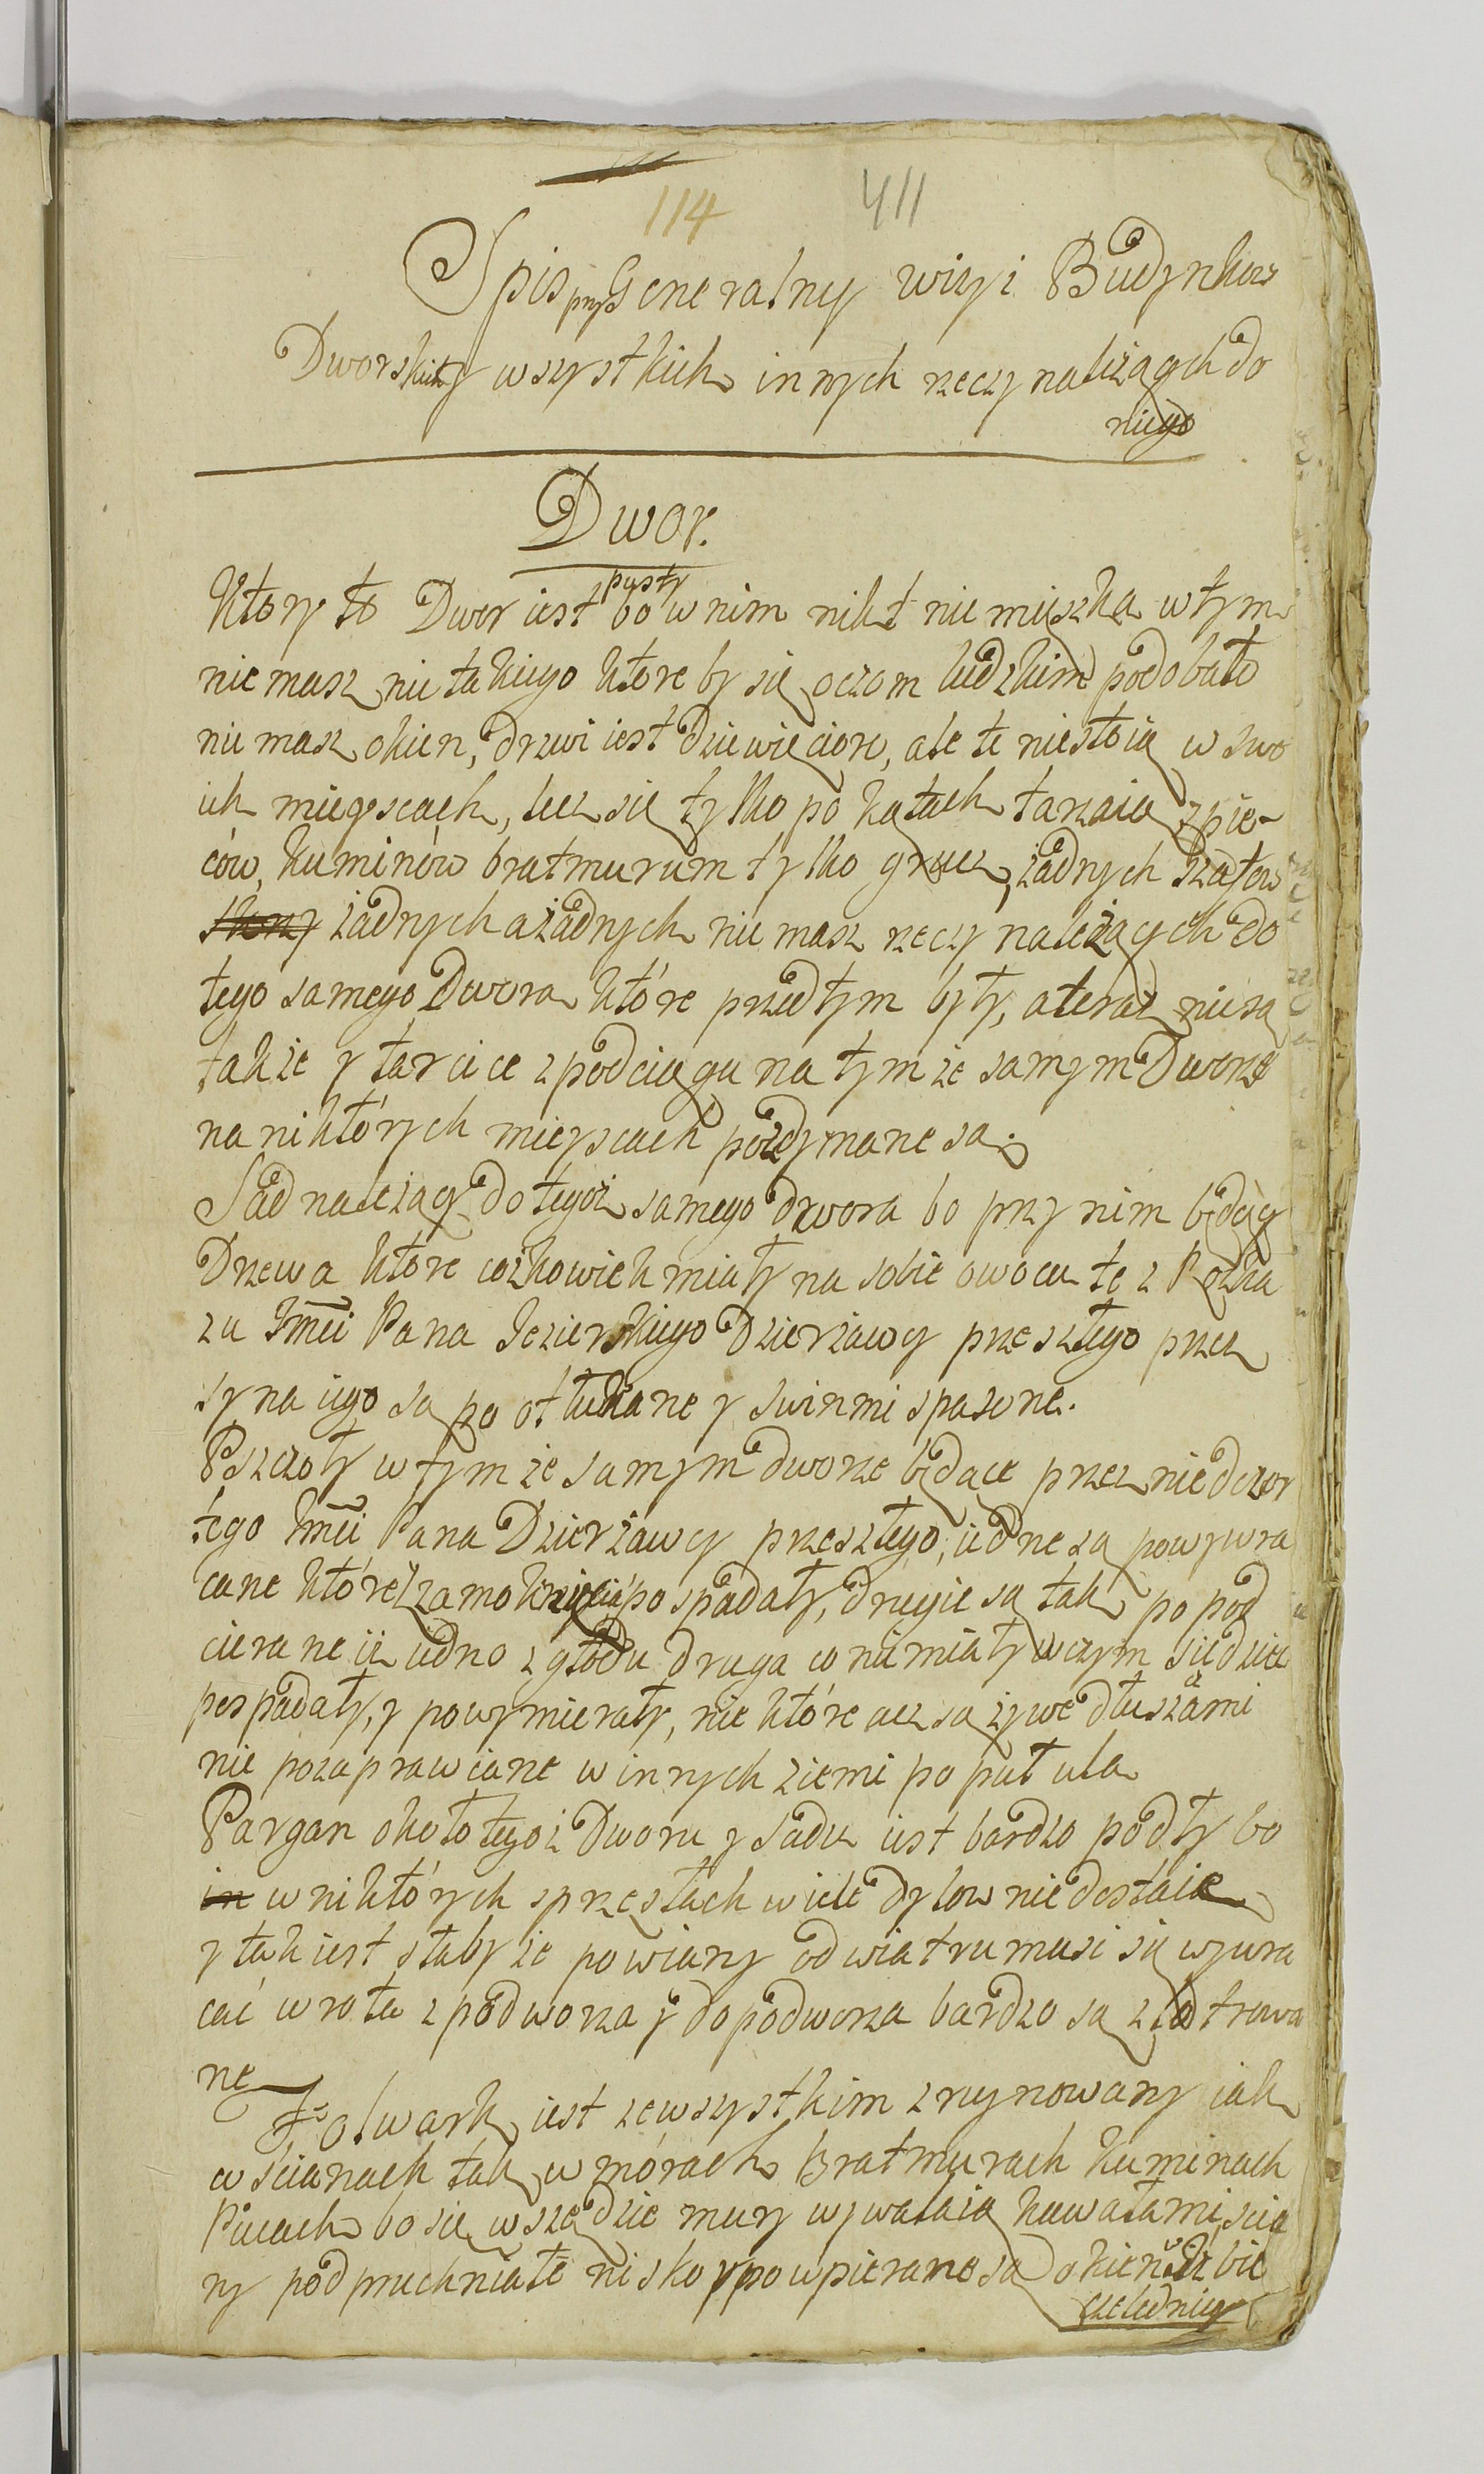 114 411
Spis przy Generalny wizyi Budynkow
Dworskich y wszystkich innych rzeczy należących do
niego
Dwor.
Ktory to Dwor iest pusty bo w nim nikt nie mięszka w tym
nie masz nic takiego ktore by się oczom ludzkim podobało
nie masz okien, drzwi iest dziewięcioro, ale te niestoią w swo
ich mieyscach, lecz się tylko po kątach tarzaią, z pie-
ców, kuminów bratmurum tylko gruz, żadnych szatow
żadnych a żadnych nie masz rzeczy należących do
tego samego Dwora które przedtym były, a teraz nie są
także y tarcice z podciągu na tymże samym Dworze
na niktórych mieyscach pozdymane są.
Sad należący do tegoż samego dwora bo przy nim będący
Drzewa które cożkowiek miały na sobie owocu te z Rozka
zu Jmci Pana Jezierskiego Dzierżawcy przeszłego przez
syna iego są po otłukane y swinmi spasone.
Pszczoły w tymże samym dworze będące przez niedozor
tego Jmci Pana Dzierżawcy przeszłego, iedne są powywra
cane które z zamoknięcia pospadały, drugie są tak po pod
cierane iż iedno z głodu druga co nie miały w czym siedzieć
pospadały, y powymierały, nie które acz są żywe dłuszami
nie pozaprawiane w innych ziemi po puł ula
Pargan około tegoż Dworu y Sadu iest bardzo podły bo
w niktórych sprzęstach wiele dylow niedostaie
y tak iest słaby że powiany od wiatru musi się wywra
cać wrota z podworza y do podworza bardzo są złotrowa
ne
Folwark iest zewszystkim zruynowany iak
w ścianach tak w mórach Bratmurach kuminach
Piecach bo się wszędzie mury wywalaią kawałami, scia
ny podpruchniałe nisko y powpierane są okien w Izbie
czeledniey